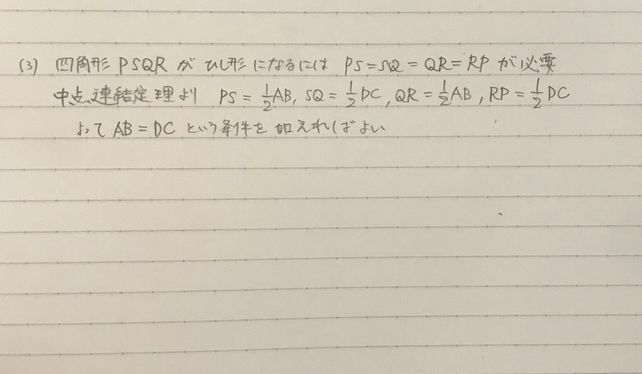 (3) 四角形 PSQR が ひし形 になるには PS=SQ=QR=RP が必要
中点連結定理より PS=½AB, SQ=½DC, QR=½AB, RP=½DC
よって AB=DC という条件を加えればよい